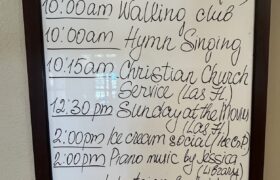 10:00am Walking club
10:00am Hymn Singing
10:15am Christian Church
Service (Las Fl.)
12:30pm Sunday at the Movies
(Las Fl.)
2:00pm Ice cream social
2:00pm Piano music by Jessica
(Library)